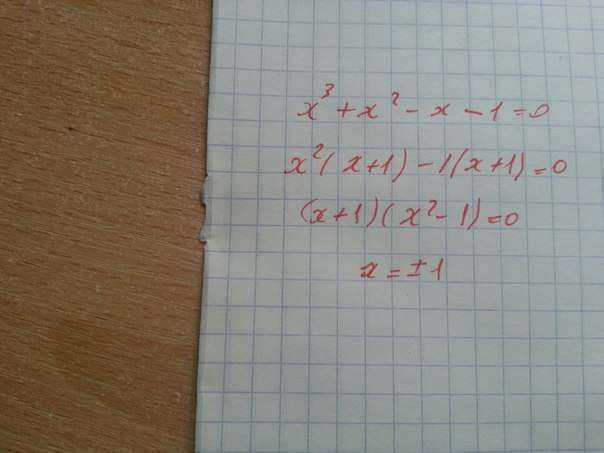 x³ + x² - x - 1 = 0
x²(x+1) - 1(x+1) = 0
(x+1)(x²-1) = 0
x = ±1